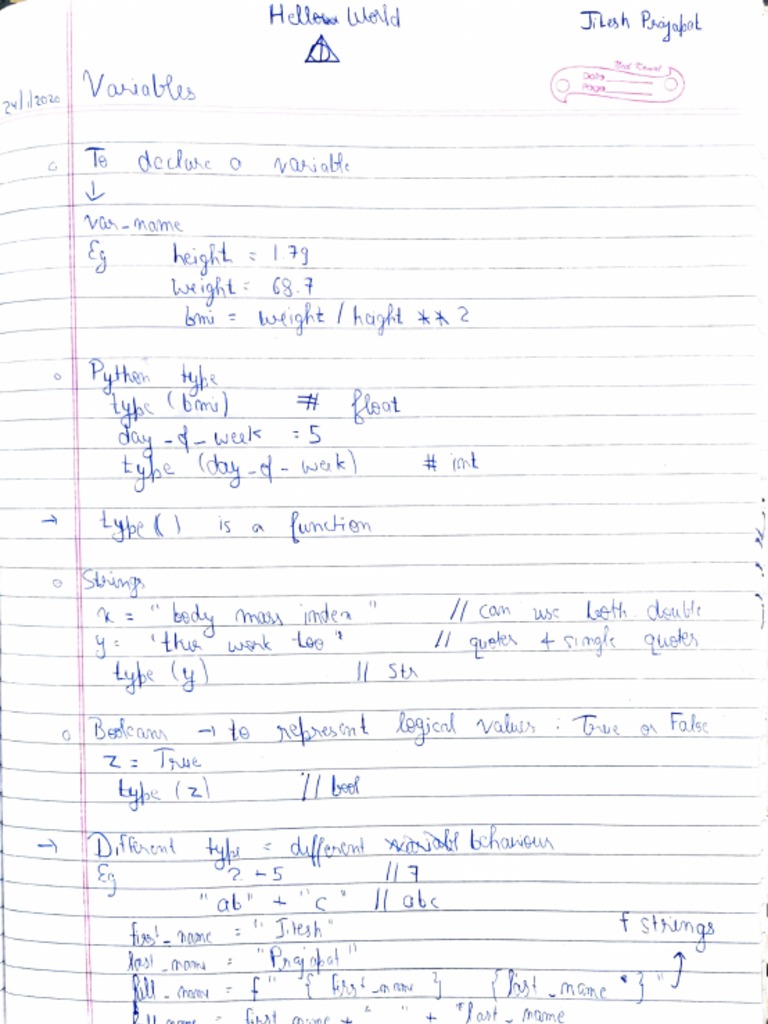 Hellow World
Jitesh Prajapat
Date
Page
24/1/2020
Variables
To declare a variable
↓
var_name
Eg height = 1.79
weight = 68.7
bmi = weight / height ** 2
Python type
type (bmi) # float
day_of_week = 5
type (day_of_week) # int
→ type() is a function
Strings
x = "body mass index" // can use both double
y = 'this work too' // quotes + single quotes
type (y) // str
Booleans → to represent logical values : True or False
z = True
type (z) // bool
→ Different type = different behaviour
Eg 2 + 5 // 7
"ab" + "c" // abc
first_name = "Jitesh"
last_name = "Prajapat"
f strings
full_name = f" { first_name } {last_name } "
full_name = first_name + " " + last_name